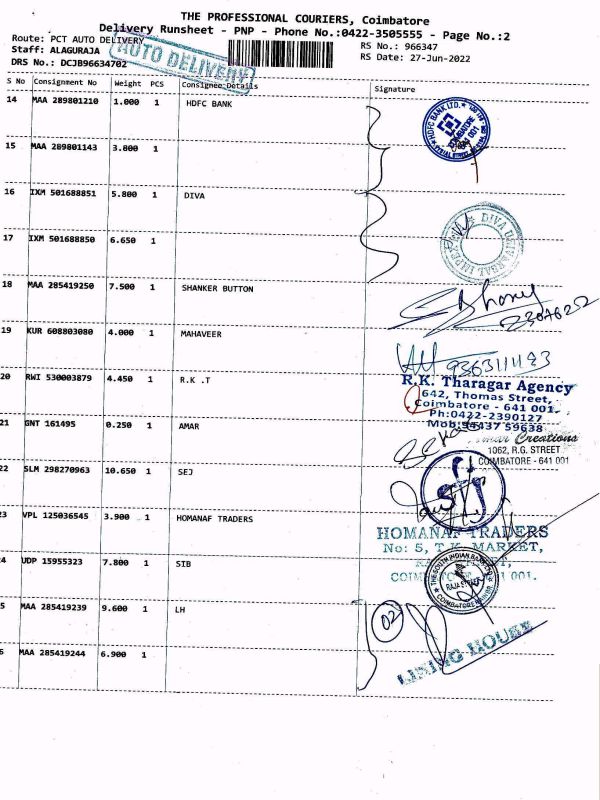 THE PROFESSIONAL COURIERS, Coimbatore
Delivery Runsheet - PNP - Phone No.:0422-3505555 - Page No.:2
Route: PCT AUTO DELIVERY
RS No.: 966347
Staff: ALAGURAJA
RS Date: 27-Jun-2022
DRS No.: DCJB96634702
AUTO DELIVERY
S No Consignment No Weight PCS Consignee Details Signature
14 MAA 289801210 1.000 1 HDFC BANK
HDFC BANK LTD.
COIMBATORE
641 001
15 MAA 289801143 3.800 1
16 IXM 501688851 5.800 1 DIVA
DIVA UNIVERSAL IMPEX
17 IXM 501688850 6.650 1
18 MAA 285419250 7.500 1 SHANKER BUTTON
19 KUR 608803080 4.000 1 MAHAVEER
20 RWI 530003879 4.450 1 R.K .T
R.K. Tharagar Agency
642, Thomas Street,
Coimbatore - 641 001.
Ph:0422-2390127
Mob:94437 59638
21 GNT 161495 0.250 1 AMAR
Creations
1062, R.G. STREET
COIMBATORE - 641 001
22 SLM 298270963 10.650 1 SEJ
sfj
3 VPL 125036545 3.900 1 HOMANAF TRADERS
HOMANAF TRADERS
No: 5, T.K. MARKET,
4 UDP 15955323 7.800 1 SIB
THE SOUTH INDIAN BANK LTD.
COIMBATORE
641 001.
5 MAA 285419239 9.600 1 LH
02
6 MAA 285419244 6.900 1
LINING HOUSE